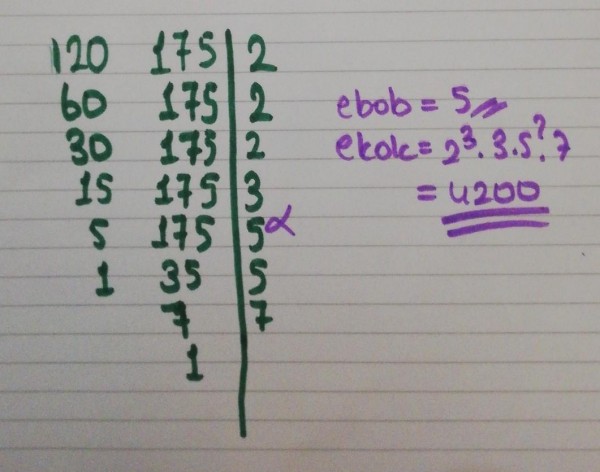 120 175 | 2
60 175 | 2
30 175 | 2
15 175 | 3
5 175 | 5α
1 35 | 5
7 | 7
1
ebob = 5
ekok = 2³.3.5².7
= 4200